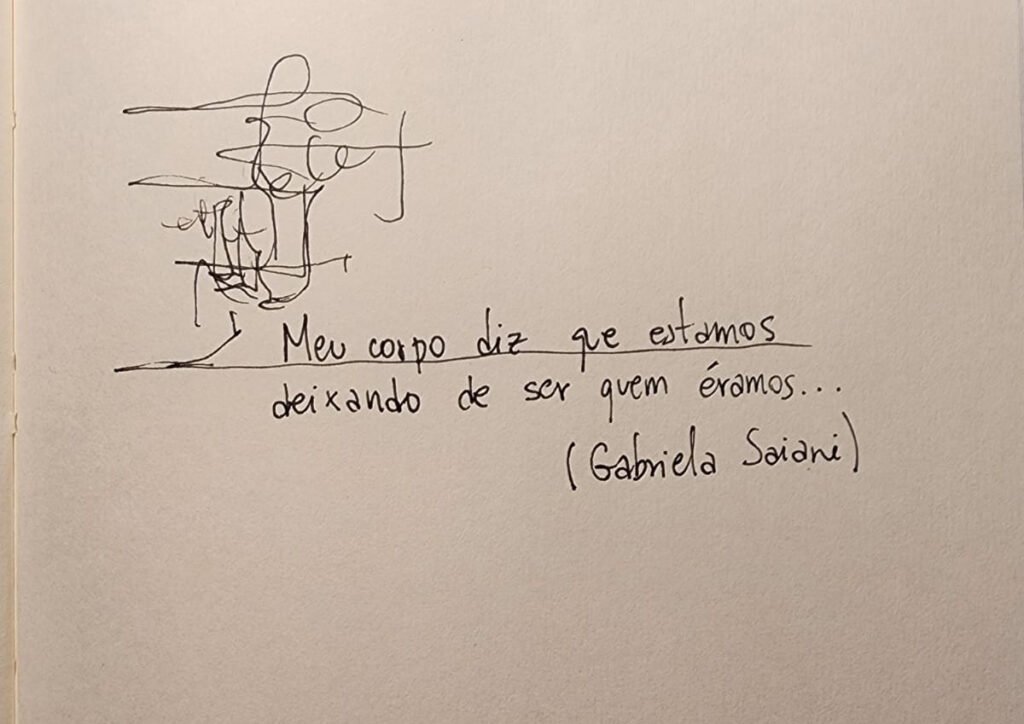 Meu corpo diz que estamos
deixando de ser quem éramos...
(Gabriela Saiani)